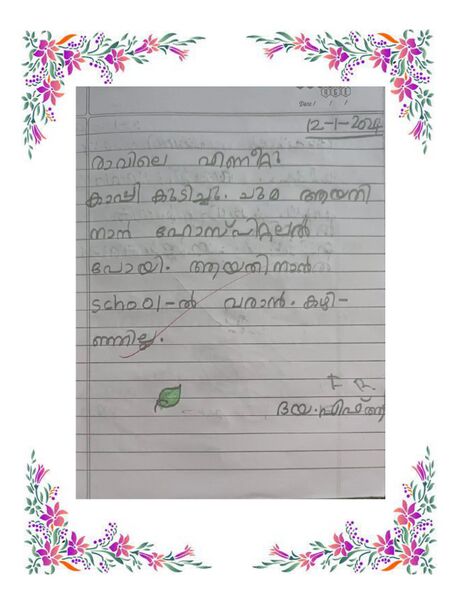 Date / / /
12-1-2024
രാവിലെ എണീറ്റു
കാപ്പി കുടിച്ചു. ചുമ ആയനി
നാൻ ഹോസ്പിറ്റലൽ
പോയി. ആയതിനാൻ
school-ൽ വരാൻ. കഴി-
ഞ്ഞില്ല.
ദയ.